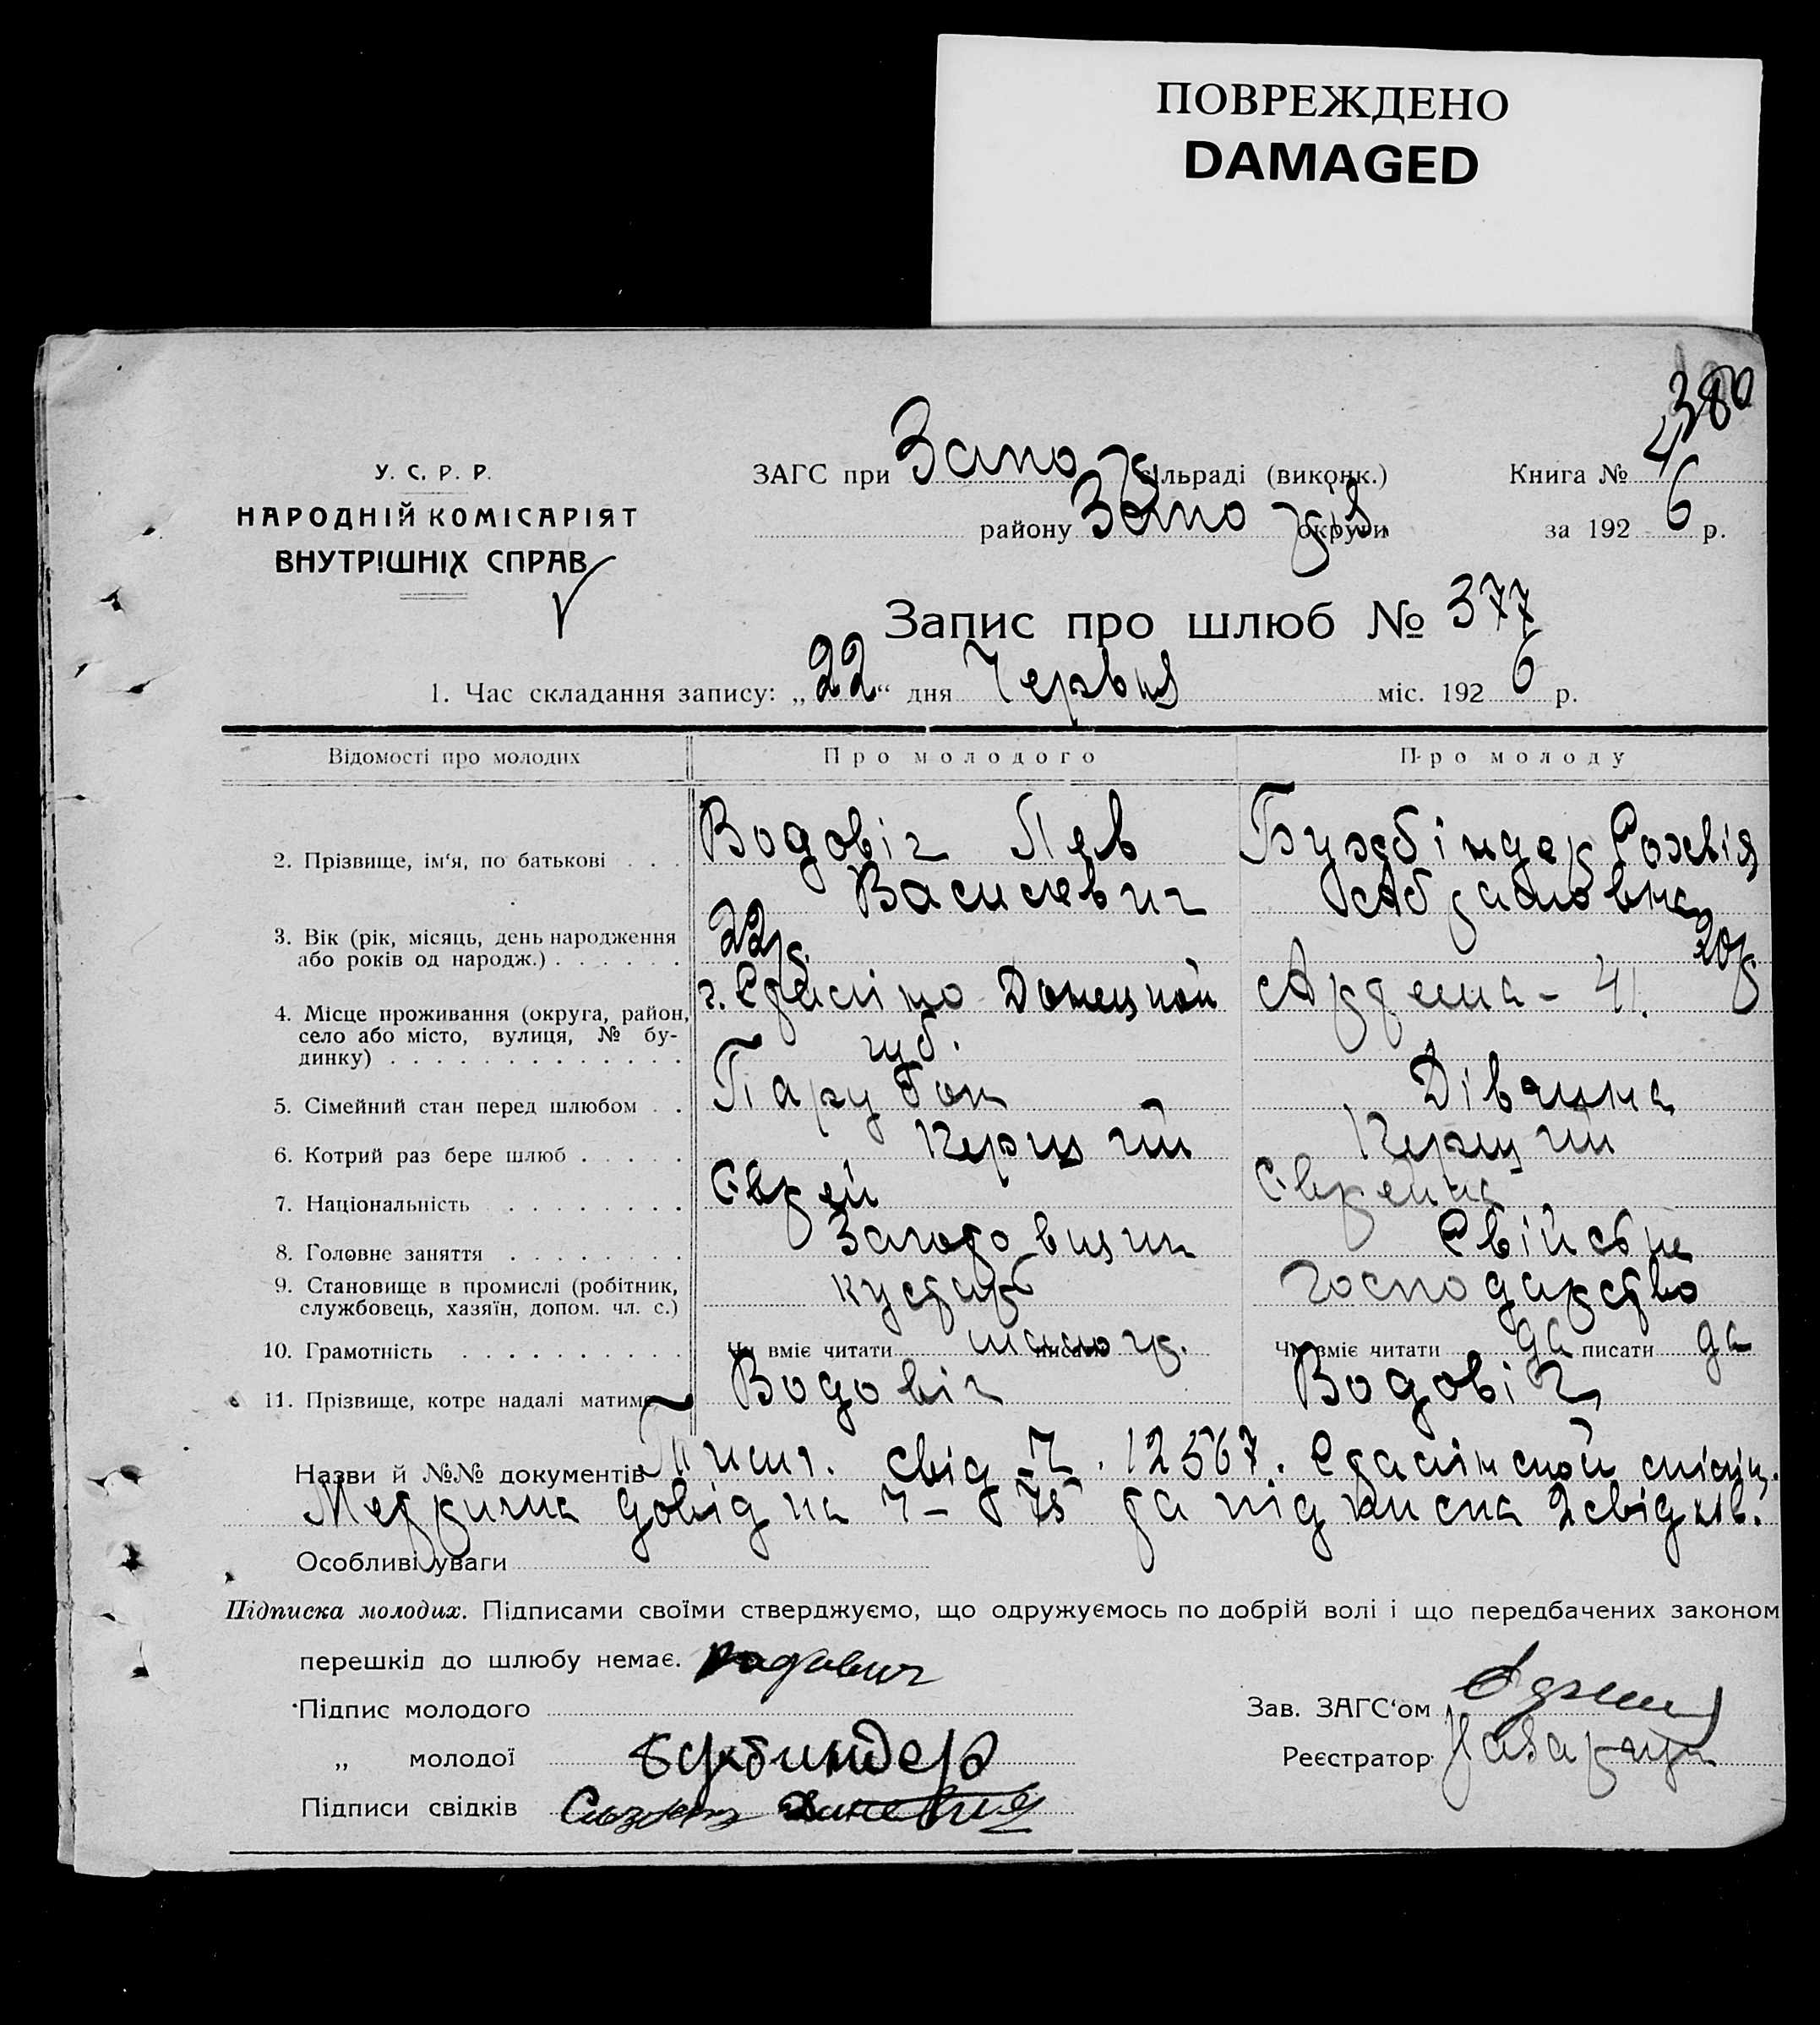 ПОВРЕЖДЕНО
DAMAGED
380
У. С. Р. Р.
НАРОДНІЙ КОМІСАРІЯТ
ВНУТРІШНІХ СПРАВ
ЗАГС при Запо льраді (виконк.) Книга № 4
району Запо округи за 192 6 р.
Запис про шлюб № 377
1. Час складання запису: „22“ дня Червня міс. 192 6 р.
Відомості про молодих Про молодого Про молоду
2. Прізвище, ім'я, по батькові . . . Водовіч Лев
Василевич
3. Вік (рік, місяць, день народження
або років од народж.) . . . . . . 22р. 20р
4. Місце проживання (округа, район,
село або місто, вулиця, № бу-
динку) . . . . . . . . . . . . . г. Сталіно Донецкой
губ.
Артема - 41.
5. Сімейний стан перед шлюбом . . Парубок Дівчина
6. Котрий раз бере шлюб . . . . . Перший Перший
7. Національність . . . . . . . . Єврей Єврейка
8. Головне заняття . . . . . . . Заготовщик Свійське
9. Становище в промислі (робітник,
службовець, хазяїн, допом. чл. с.) кустарь господарство
10. Грамотність . . . . . . . . . . Чи вміє читати писати мало гр. Чи вміє читати да писати да
11. Прізвище, котре надалі матиме Водовіч Водовіч
Назви й №№ документів свід 12567. Сталінской міліц.
Метрична довідка ч- 75 та підписка 2 свідків.
Особливі уваги
Підписка молодих. Підписами своїми стверджуємо, що одружуємось по добрій волі і що передбачених законом
перешкід до шлюбу немає. Водович
Підпис молодого Зав. ЗАГС'ом
„ молодої Букбиндер Реєстратор
Підписи свідків